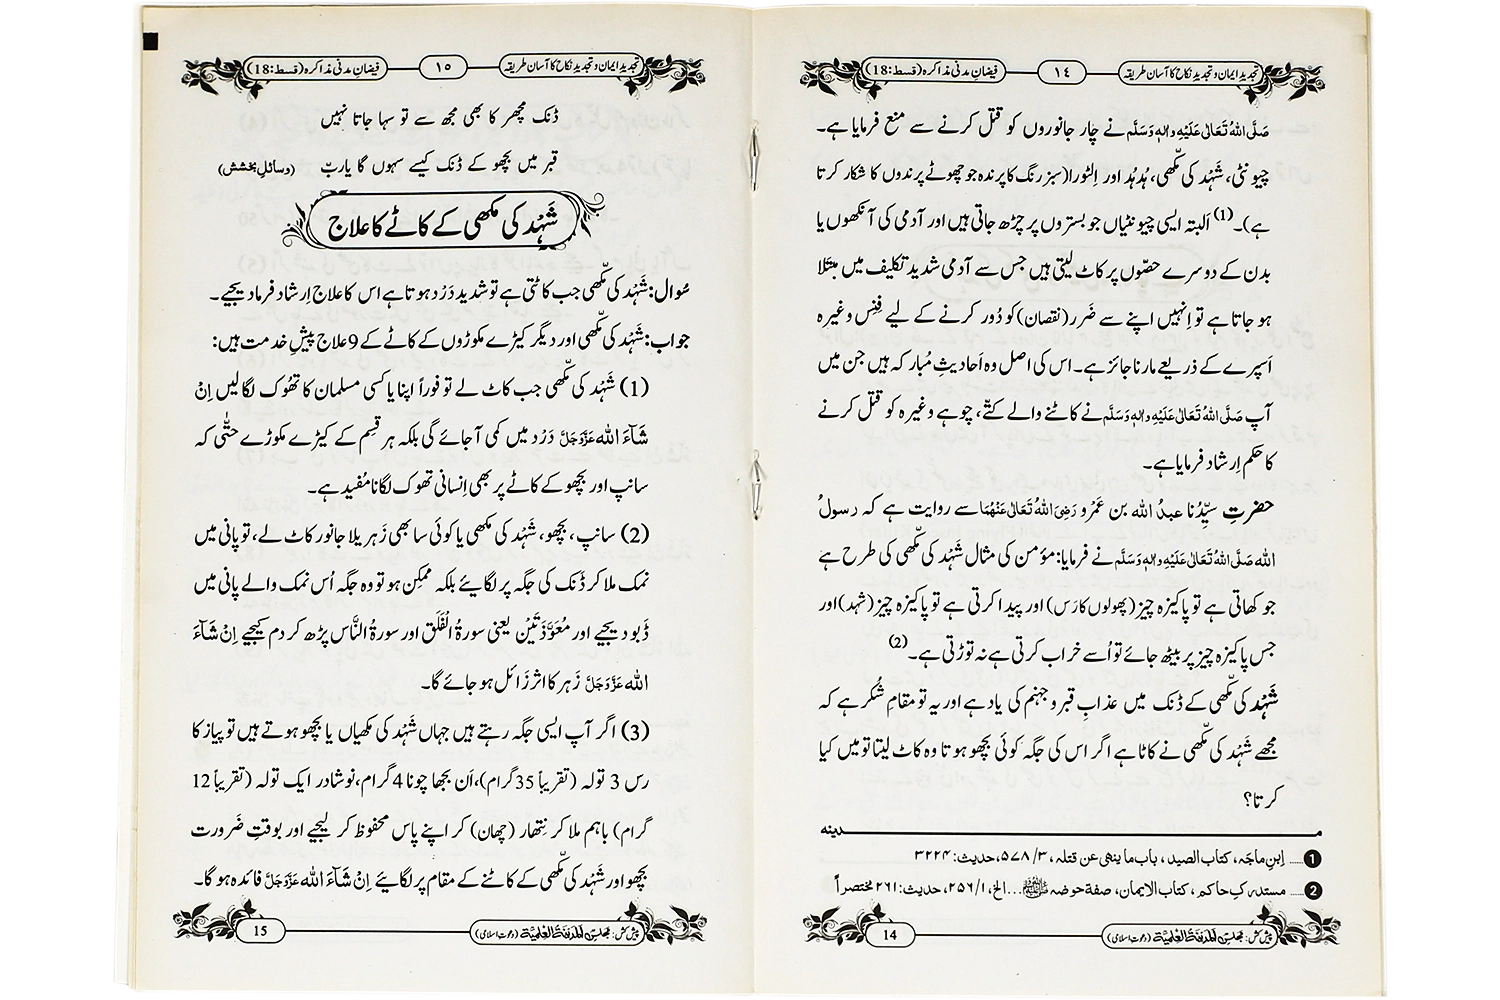 تجدیدِ ایمان و تجدیدِ نکاح کا آسان طریقہ
١٤
فیضانِ مدنی مذاکرہ (قسط:18)
صَلَّی اللہُ تَعَالٰی عَلَیْہِ وَاٰلِہٖ وَسَلَّم نے چار جانوروں کو قتل کرنے سے منع فرمایا ہے۔
چیونٹی، شَہْد کی مکّھی، ہُدہُد اور لِٹورا(سبز رنگ کا پرندہ جو چھوٹے پرندوں کا شکار کرتا
ہے)۔(1) اَلبتہ ایسی چیونٹیاں جو بستروں پر چڑھ جاتی ہیں اور آدمی کی آنکھوں یا
بدن کے دوسرے حصّوں پر کاٹ لیتی ہیں جس سے آدمی شدید تکلیف میں مبتلا
ہو جاتا ہے تو اِنہیں اپنے سے ضَرر(نقصان) کو دُور کرنے کے لیے فِنِس وغیرہ
اَسپرے کے ذریعے مارنا جائز ہے۔ اس کی اصل وہ اَحادیثِ مُبارکہ ہیں جن میں
آپ صَلَّی اللہُ تَعَالٰی عَلَیْہِ وَاٰلِہٖ وَسَلَّم نے کاٹنے والے کتّے، چوہے وغیرہ کو قتل کرنے
کا حکم اِرشاد فرمایا ہے۔
حضرتِ سیِّدُنا عبدُ اللہ بن عَمْرو رَضِیَ اللہُ تَعَالٰی عَنْہُمَا سے روایت ہے کہ رسولُ
اللہ صَلَّی اللہُ تَعَالٰی عَلَیْہِ وَاٰلِہٖ وَسَلَّم نے فرمایا: مؤمن کی مثال شَہْد کی مکّھی کی طرح ہے
جو کھاتی ہے تو پاکیزہ چیز (پھولوں کا رَس) اور پیدا کرتی ہے تو پاکیزہ چیز (شہد) اور
جس پاکیزہ چیز پر بیٹھ جائے تو اُسے خراب کرتی ہے نہ توڑتی ہے۔(2)
شَہْد کی مکّھی کے ڈنک میں عذابِ قبر و جہنم کی یاد ہے اور یہ تو مقامِ شُکر ہے کہ
مجھے شَہْد کی مکّھی نے کاٹا ہے اگر اس کی جگہ کوئی بچھو ہوتا وہ کاٹ لیتا تو میں کیا
کرتا؟
مدینہ
1 ..... اِبنِ ماجَہ، کتاب الصید، باب ما ینھی عن قتلہ، ٣/ ٥٧٨، حدیث: ٣٢٢٤
2 ..... مستدرکِ حاکم، کتاب الایمان، صفة حوضہ ﷺ...الخ، ١/ ٢٥٦، حدیث: ٢٦١ مختصراً
پیش کش: مجلس اَلْمَدِیْنَۃُ الْعِلْمِیَّۃ (دعوتِ اسلامی)
14
تجدیدِ ایمان و تجدیدِ نکاح کا آسان طریقہ
١٥
فیضانِ مدنی مذاکرہ (قسط:18)
ڈنک مچھر کا بھی مجھ سے تو سہا جاتا نہیں
قبر میں بچھو کے ڈنک کیسے سہوں گا یاربّ (وسائلِ بخشش)
شَہْد کی مکھی کے کاٹے کا علاج
سُوال: شَہْد کی مکّھی جب کاٹتی ہے تو شدید دَرْد ہوتا ہے اس کا علاج اِرشاد فرما دیجیے۔
جواب: شَہْد کی مکّھی اور دیگر کیڑے مکوڑوں کے کاٹے کے 9 علاج پیشِ خدمت ہیں:
(1) شَہْد کی مکّھی جب کاٹ لے تو فوراً اپنا یا کسی مسلمان کا تھُوک لگالیں اِنْ
شَآءَ اللہ عَزَّوَجَلَّ دَرْد میں کمی آجائے گی بلکہ ہر قسم کے کیڑے مکوڑے حتّٰی کہ
سانپ اور بچھو کے کاٹے پر بھی اِنسانی تھوک لگانا مُفید ہے۔
(2) سانپ، بچھو، شَہْد کی مکھی یا کوئی سا بھی زَہریلا جانور کاٹ لے، تو پانی میں
نمک ملا کر ڈنک کی جگہ پر لگائیے بلکہ ممکن ہو تو وہ جگہ اُس نمک والے پانی میں
ڈبو دیجیے اور مُعَوَّذَتَیْن یعنی سورۃُ الْفَلَق اور سورۃُ النَّاس پڑھ کر دم کیجیے اِنْ شَآءَ
اللہ عَزَّوَجَلَّ زَہر کا اثر زَائل ہو جائے گا۔
(3) اگر آپ ایسی جگہ رہتے ہیں جہاں شَہْد کی مکھیاں یا بچھو ہوتے ہیں تو پیاز کا
رس 3 تولہ (تقریباً 35 گرام)، اَن بجھا چونا 4 گرام، نوشادر ایک تولہ (تقریباً 12
گرام) باہم ملا کر نِتھار (چھان) کر اپنے پاس محفوظ کر لیجیے اور بوقتِ ضَرورت
بچھو اور شَہْد کی مکّھی کے کاٹنے کے مقام پر لگائیے اِنْ شَآءَ اللہ عَزَّوَجَلَّ فائدہ ہوگا۔
پیش کش: مجلس اَلْمَدِیْنَۃُ الْعِلْمِیَّۃ (دعوتِ اسلامی)
15